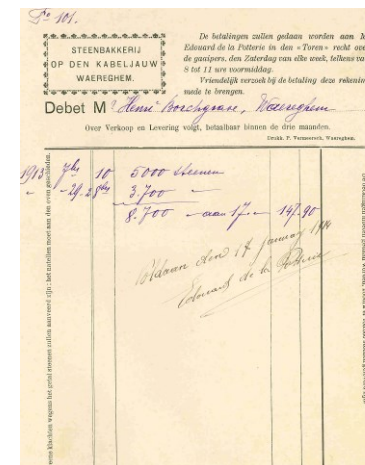 Fo 101.
De betalingen zullen gedaan worden aan
Edouard de la Potterie in den «Toren» recht over
de gaaipers, den Zaterdag van elke week, telkens va
8 tot 11 ure voormiddag.
Vriendelijk verzoek bij de betaling deze rekenin
mede te brengen.
STEENBAKKERIJ
OP DEN KABELJAUW
WAEREGHEM.
Debet Mr Henri Borchgrave, Waereghem
Over Verkoop en Levering volgt, betaalbaar binnen de drie maanden.
Drukk. P. Vermeersch, Waereghem.
1913 7bre 10 5000 steenen
" - 29. 3.700 -
8.700 - aan 17 - 147.90
Voldaan den 17 january
Edouard de la Potterie
eene klachten wegens het getal steenen zullen aanveerd zijn: het aantellen moet aan den oven geschieden.